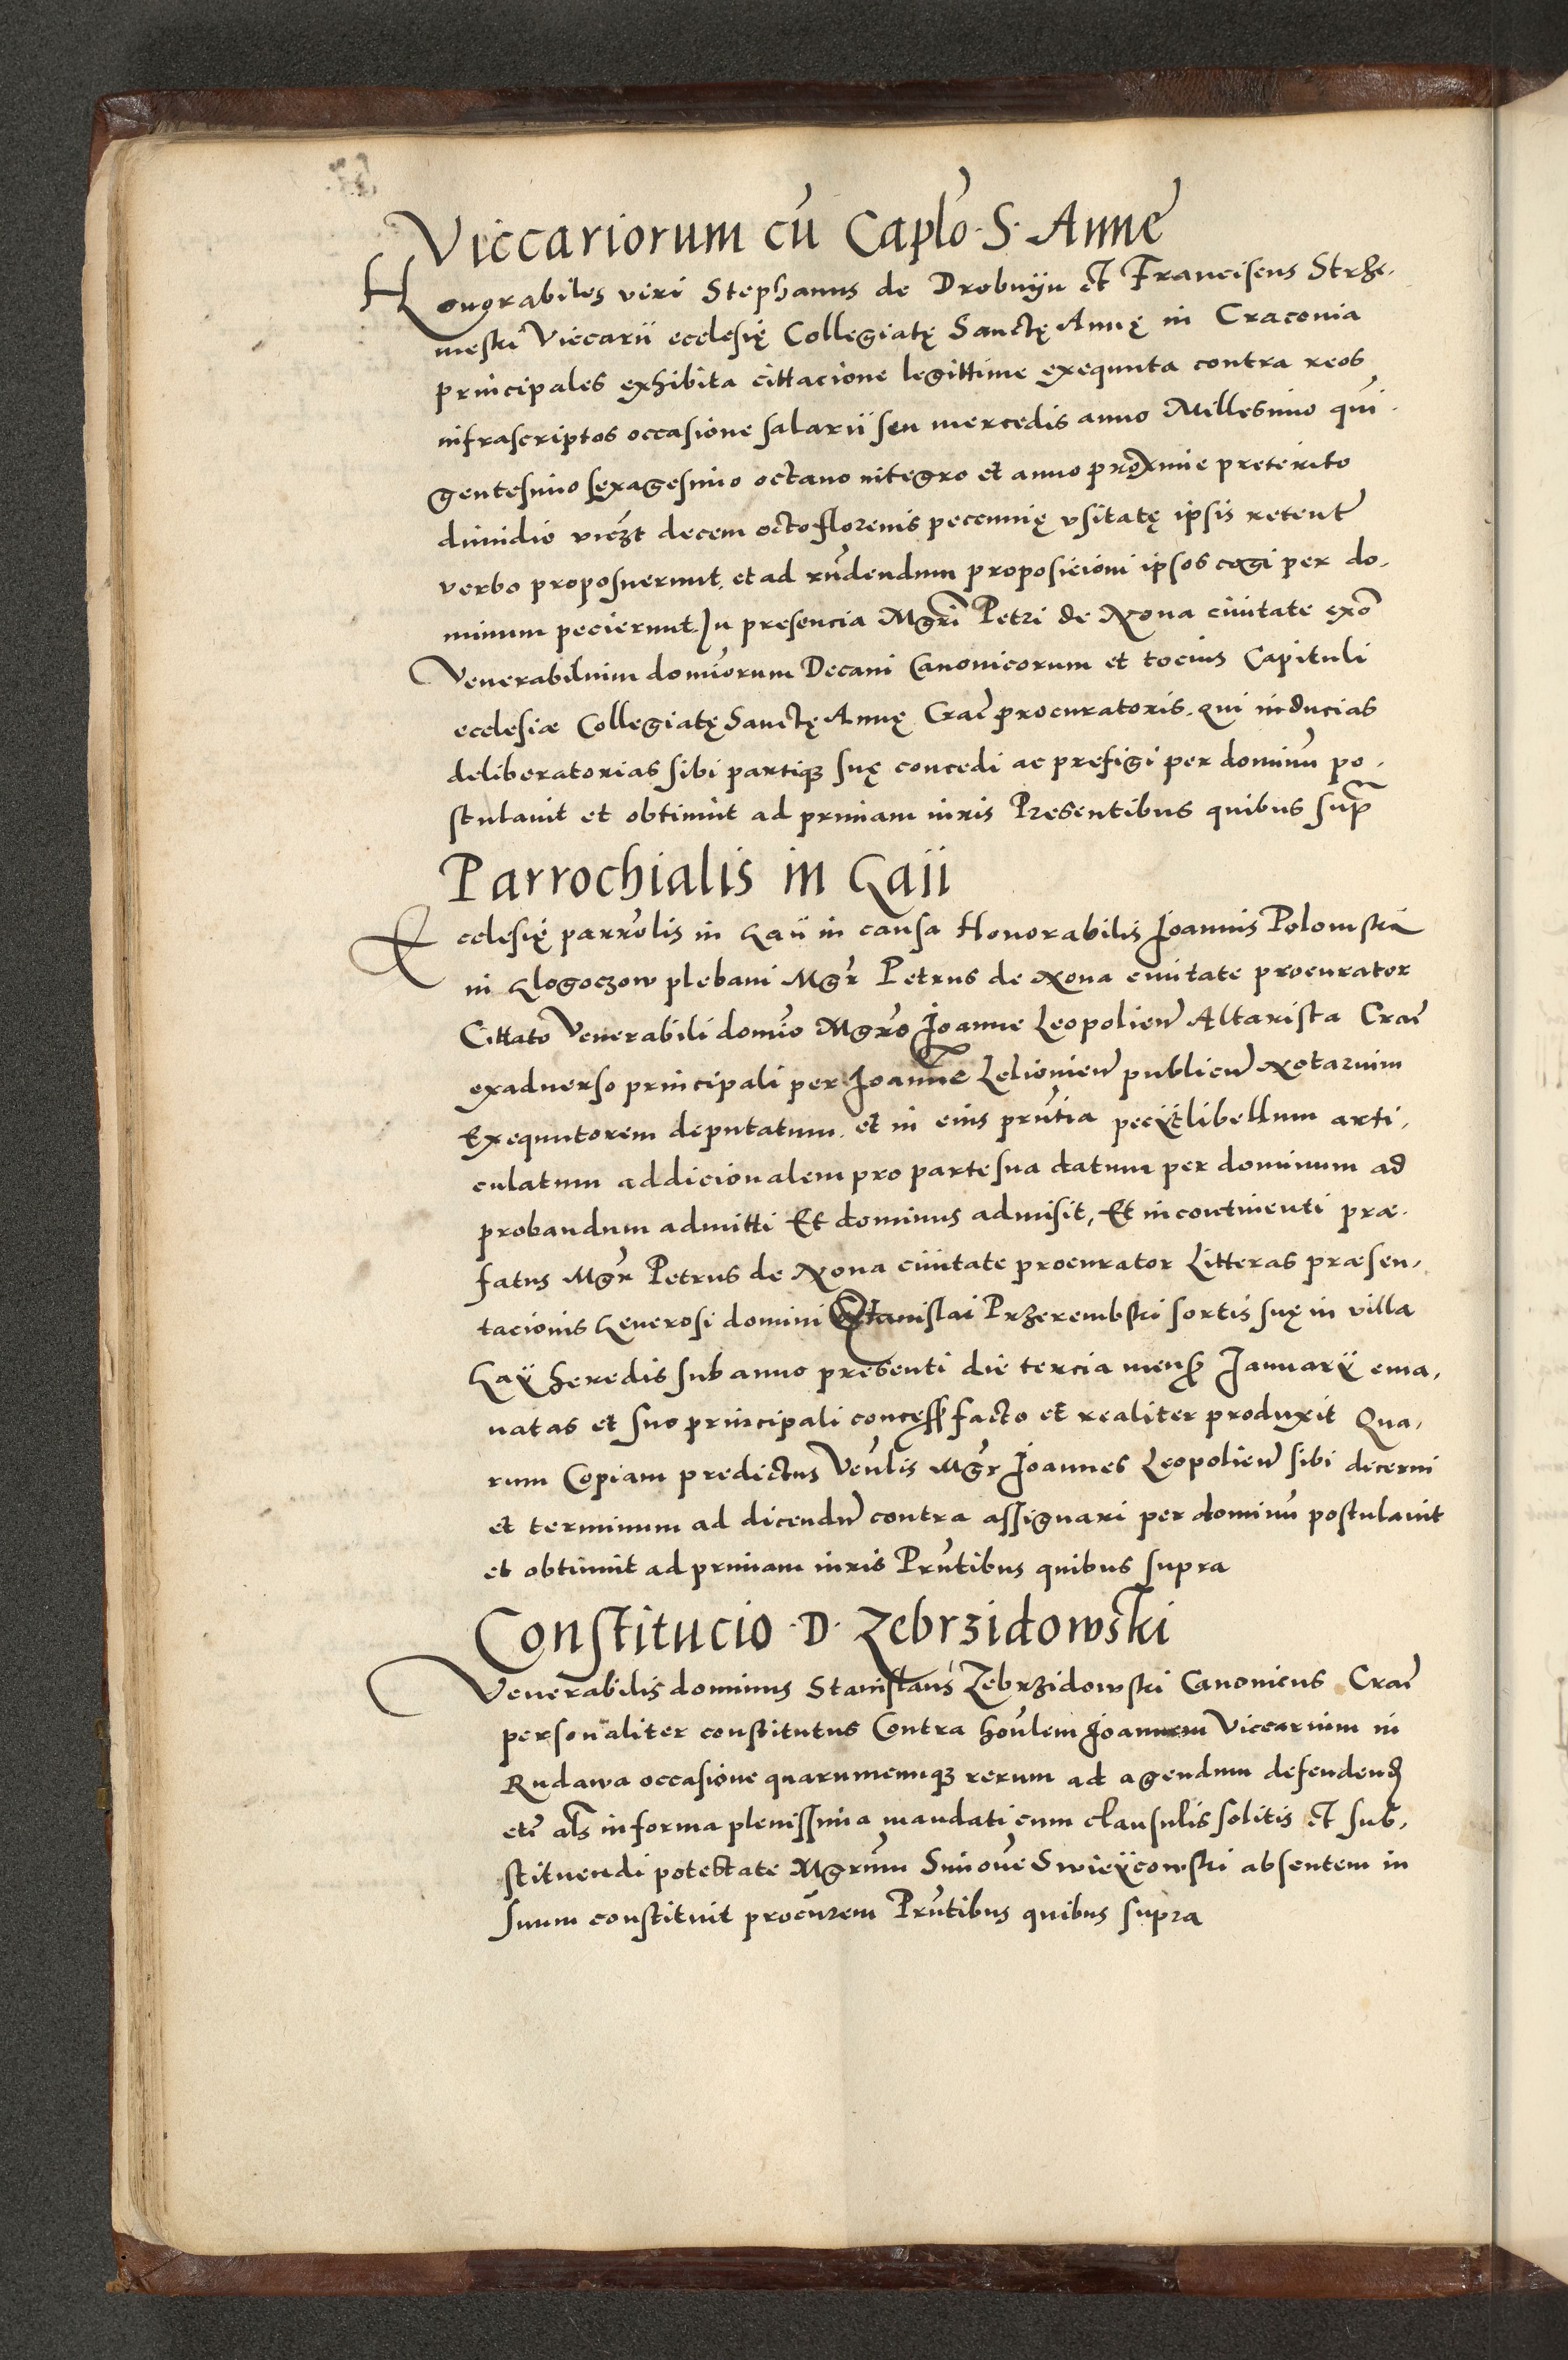 Viccariorum cū Caplo S. Anne
Honorabiles viri Stephanus de Drobnyn et Franciscus Strze-
meski Viccarii ecclesię Collegiatę Sanctę Annę in Craconia
principales exhibita cittacione legittime exequuta contra reos
infrascriptos occasione salarii seu mercedis anno Millesimo quī-
gentesimo sexagesimo octauo integro et anno proxime preterito
dimidio viczt decem octo florenis pecunnię vsitatę ipsis retent
verbo proposuerunt, et ad rn̄dendum proposicioni ipsos cogi per do-
minum pecierunt. In presencia Mgri Petri de Noua ciuitate exo
Venerabilium domiorum Decani Canonicorum et tocius Capituli
ecclesiæ Collegiatę Sanctę Annę Crac̄ procuratoris, qui inducias
deliberatorias sibi partiq3 suę concedi ac prefigi per dominū po-
stulauit et obtinuit ad primam iuris Presentibus quibus supr̄
Parrochialis in Gaii
Ecclesię parrolis in Gaii in causa Honorabilis Joannis Polomski
in Glogoczow plebani Mgr Petrus de Noua ciuitate procurator
Cittato Venerabili domīo Mgrō Joanne Leopolien Altarista Crac̄
exaduerso principali per Joannē Lelionien publicū Notarium
Exequutorem deputatum, et in eius prn̄tia peciit libellum arti-
culatum addicionalem pro parte sua datum per dominum ad
probandum admitti Et dominus admisit, Et in continenti præ-
fatus Mgr Petrus de Noua ciuitate procurator Litteras præsen-
tacionis Generosi domini Stanislai Przerembski sortis suę in villa
Gaÿ heredis sub anno presenti die tercia mens Januarÿ ema-
natas et suo principali concess facto et realiter produxit Qua-
rum Copiam predictus Venlis Mgr Joannes Leopolien sibi decerni
et terminum ad dicendū contra assignari per dominū postulauit
et obtinuit ad primam iuris Prn̄tibus quibus supra
Constitucio D. Zebrzidowski
Venerabilis dominus Stanislaus Zebrzidowski Canonicus Crac̄
personaliter constitutus Contra honlem Joannem Viccarium in
Rudawa occasione quarumcunq3 rerum ad agendum defendend
etc̄ als in forma plenissima mandati cum clausulis solitis et sub-
stituendi potestate Mgrum Simonē Swieÿcowski absentem in
suum constituit procūrem Prn̄tibus quibus supra